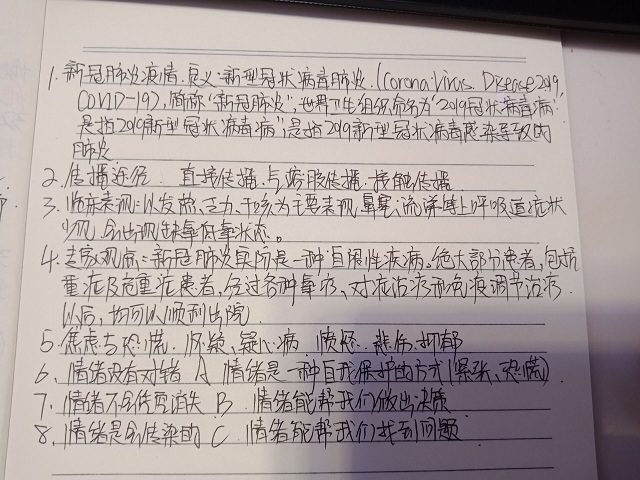 1. 新冠肺炎疫情. 定义:新型冠状病毒肺炎. (Corona Virus Disease 2019,
COVID-19), 简称"新冠肺炎", 世界卫生组织命名为"2019冠状病毒病"
是指2019新型冠状病毒病",是指2019新型冠状病毒感染导致的
肺炎
2. 传播途径. 直接传播. 气溶胶传播. 接触传播
3. 临床表现:以发热、乏力、干咳为主要表现, 鼻塞、流涕等上呼吸道症状
少见, 会出现缺氧低氧状态。
4. 专家观点:新冠肺炎实际是一种自限性疾病。绝大部分患者, 包括
重症及危重症患者, 经过各种氧疗、对症治疗和免疫调节治疗
以后, 均可以顺利出院
5. 焦虑与恐慌. 怀疑、疑心病 愤怒. 悲伤. 抑郁
6. 情绪没有对错 A 情绪是一种自我保护的方式(紧张、恐慌)
7. 情绪不会凭空消失 B 情绪能帮我们做出决策
8. 情绪是会传染的 C 情绪能帮我们找到问题